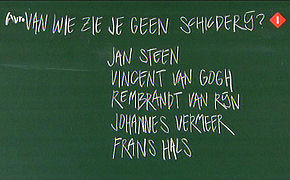 Avro VAN WIE ZIE JE GEEN SCHILDERIJ? 1
JAN STEEN
VINCENT VAN GOGH
REMBRANDT VAN RIJN
JOHANNES VERMEER
FRANS HALS